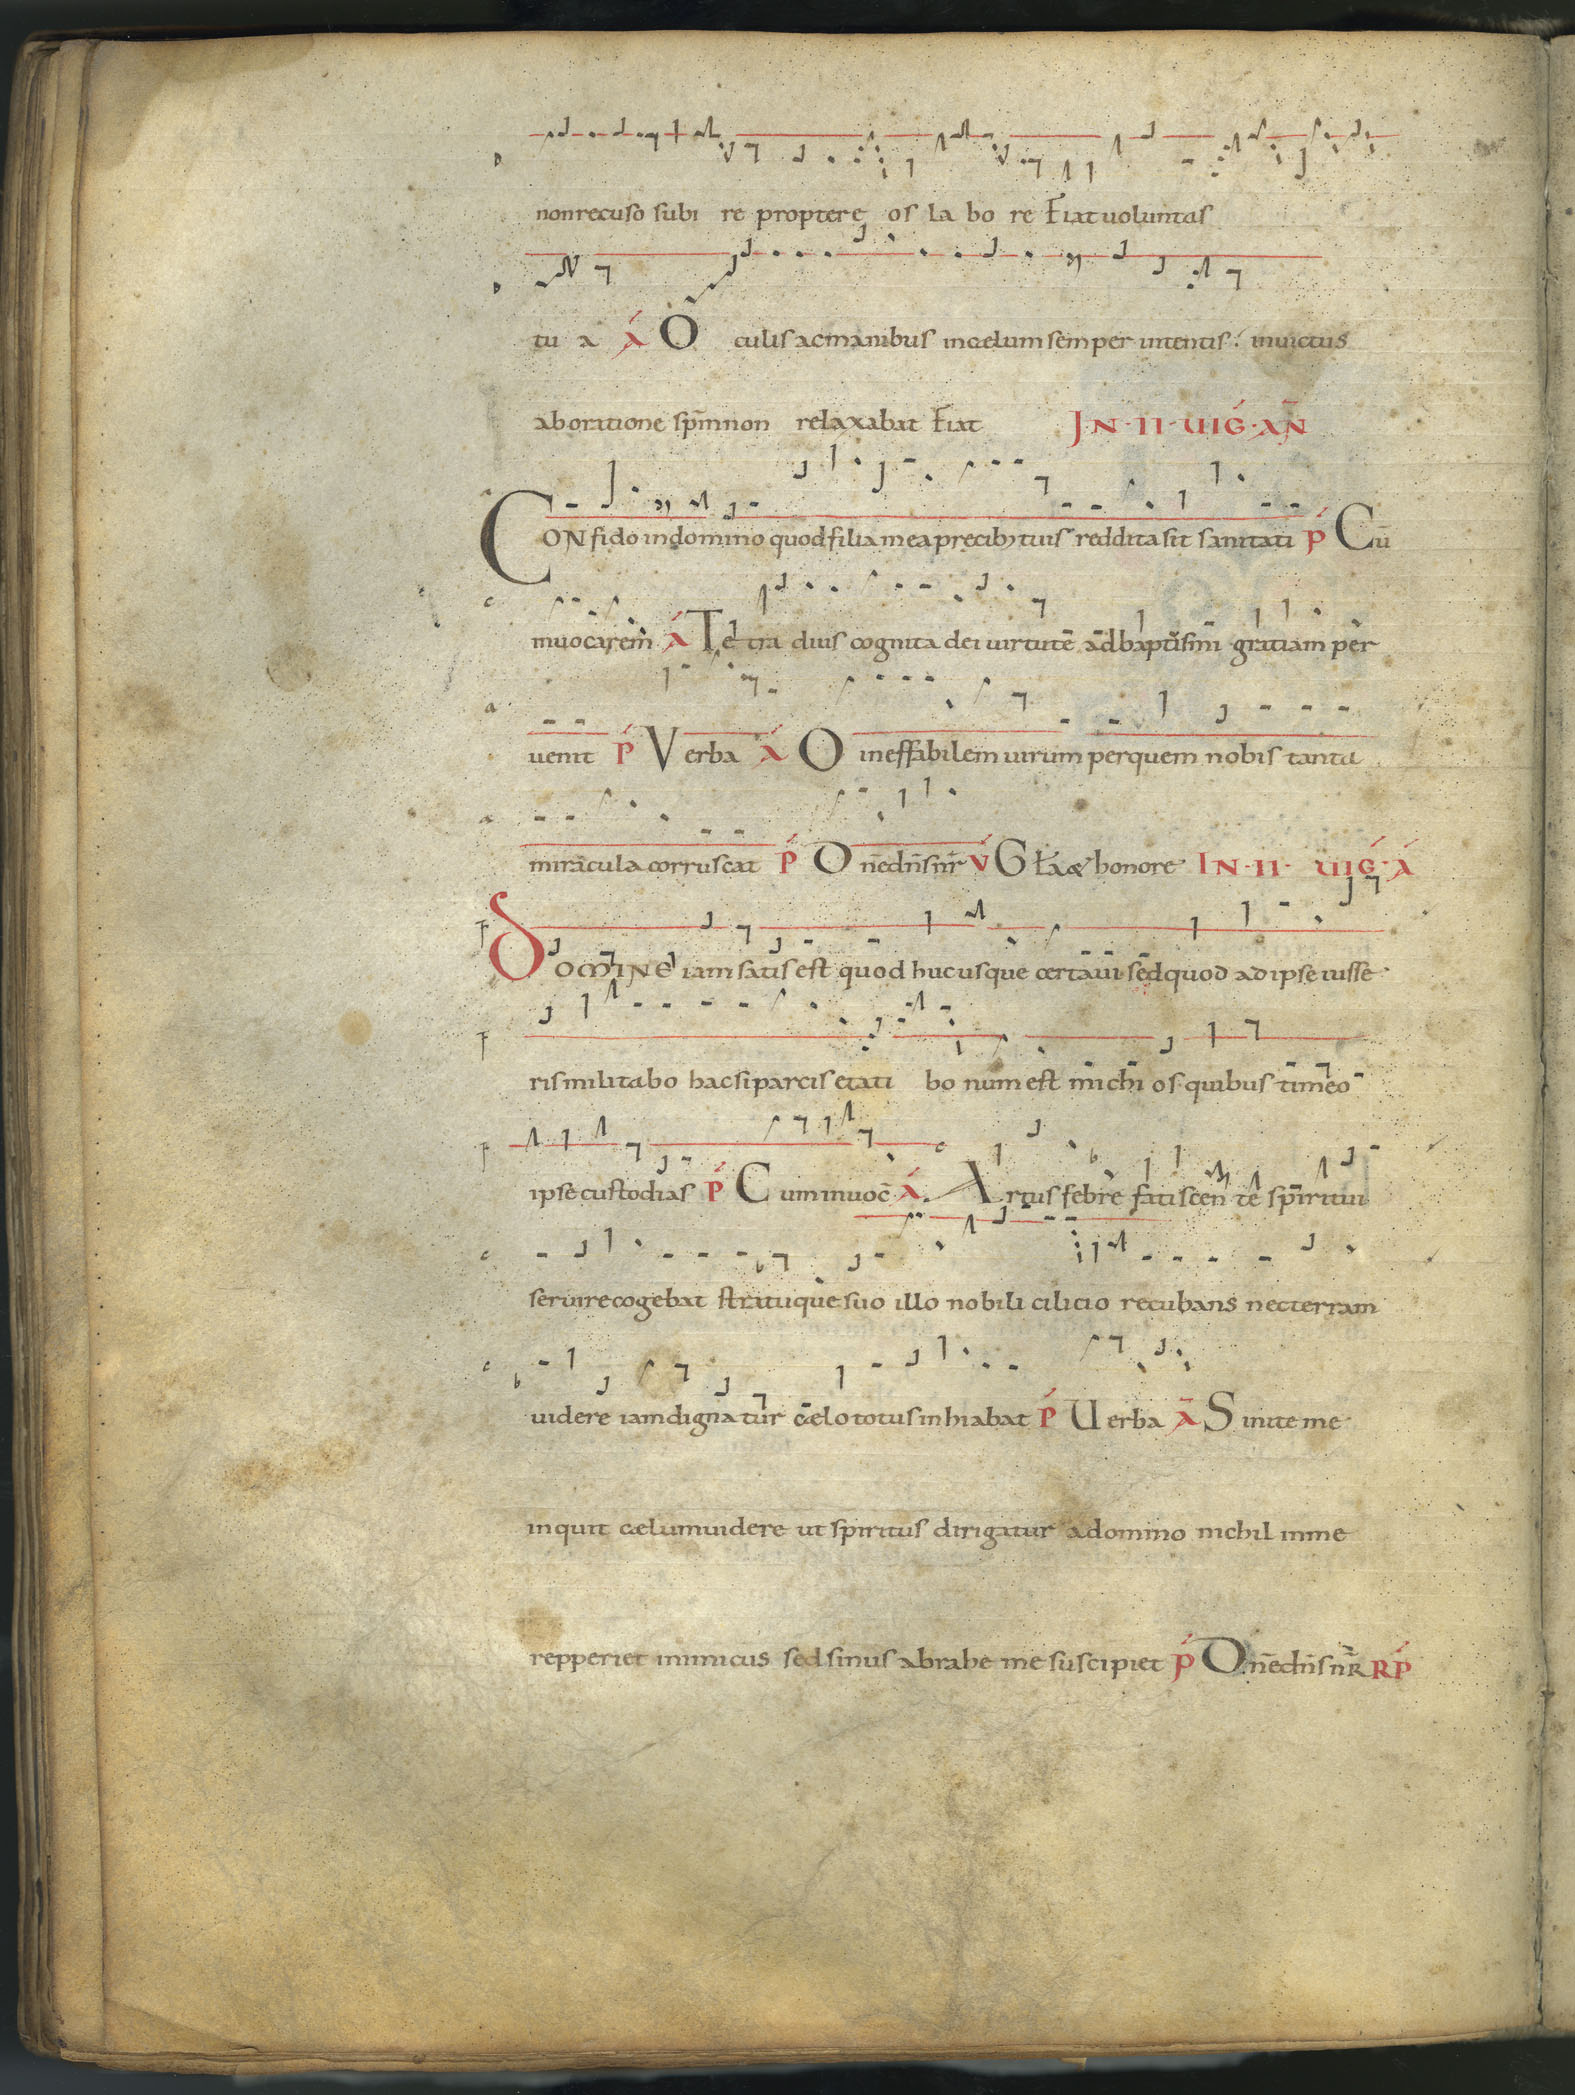 non recuso subi re propter eos la bo re Fiat uoluntas
tu a á O culis ac manibus in caelum semper intentis inuictus
ab oratione spm non relaxabat Fiat IN · II · UIG · AN
CONfido in domino quod filia mea precib; tuis reddita sit sanitati p Cū
inuocarem á Te tra dius cognita dei uirtutē ad baptismi gratiam per
uenit p Verba á O ineffabilem uirum per quem nobis tanta
miracula corruscat p O nē dns nr V G ła & honore IN · II · UIG · á
DOMINE iam satis est quod hucusque certaui sed quod ad ipse iusse
ris militabo hac si parcis etati bo num est michi os quibus timeo
ipse custodias p Cum inuoc á Artus febre fatiscen te spiritui
seruire cogebat stratuque suo illo nobili cilicio recubans nec terram
uidere iam dignatur caelo totus inhiabat p Uerba á Sinite me
inquit caelum uidere ut spiritus dirigatur ad domino nichil in me
repperiet inimicus sed sinus abrahe me suscipiet p O nē dns nr RP